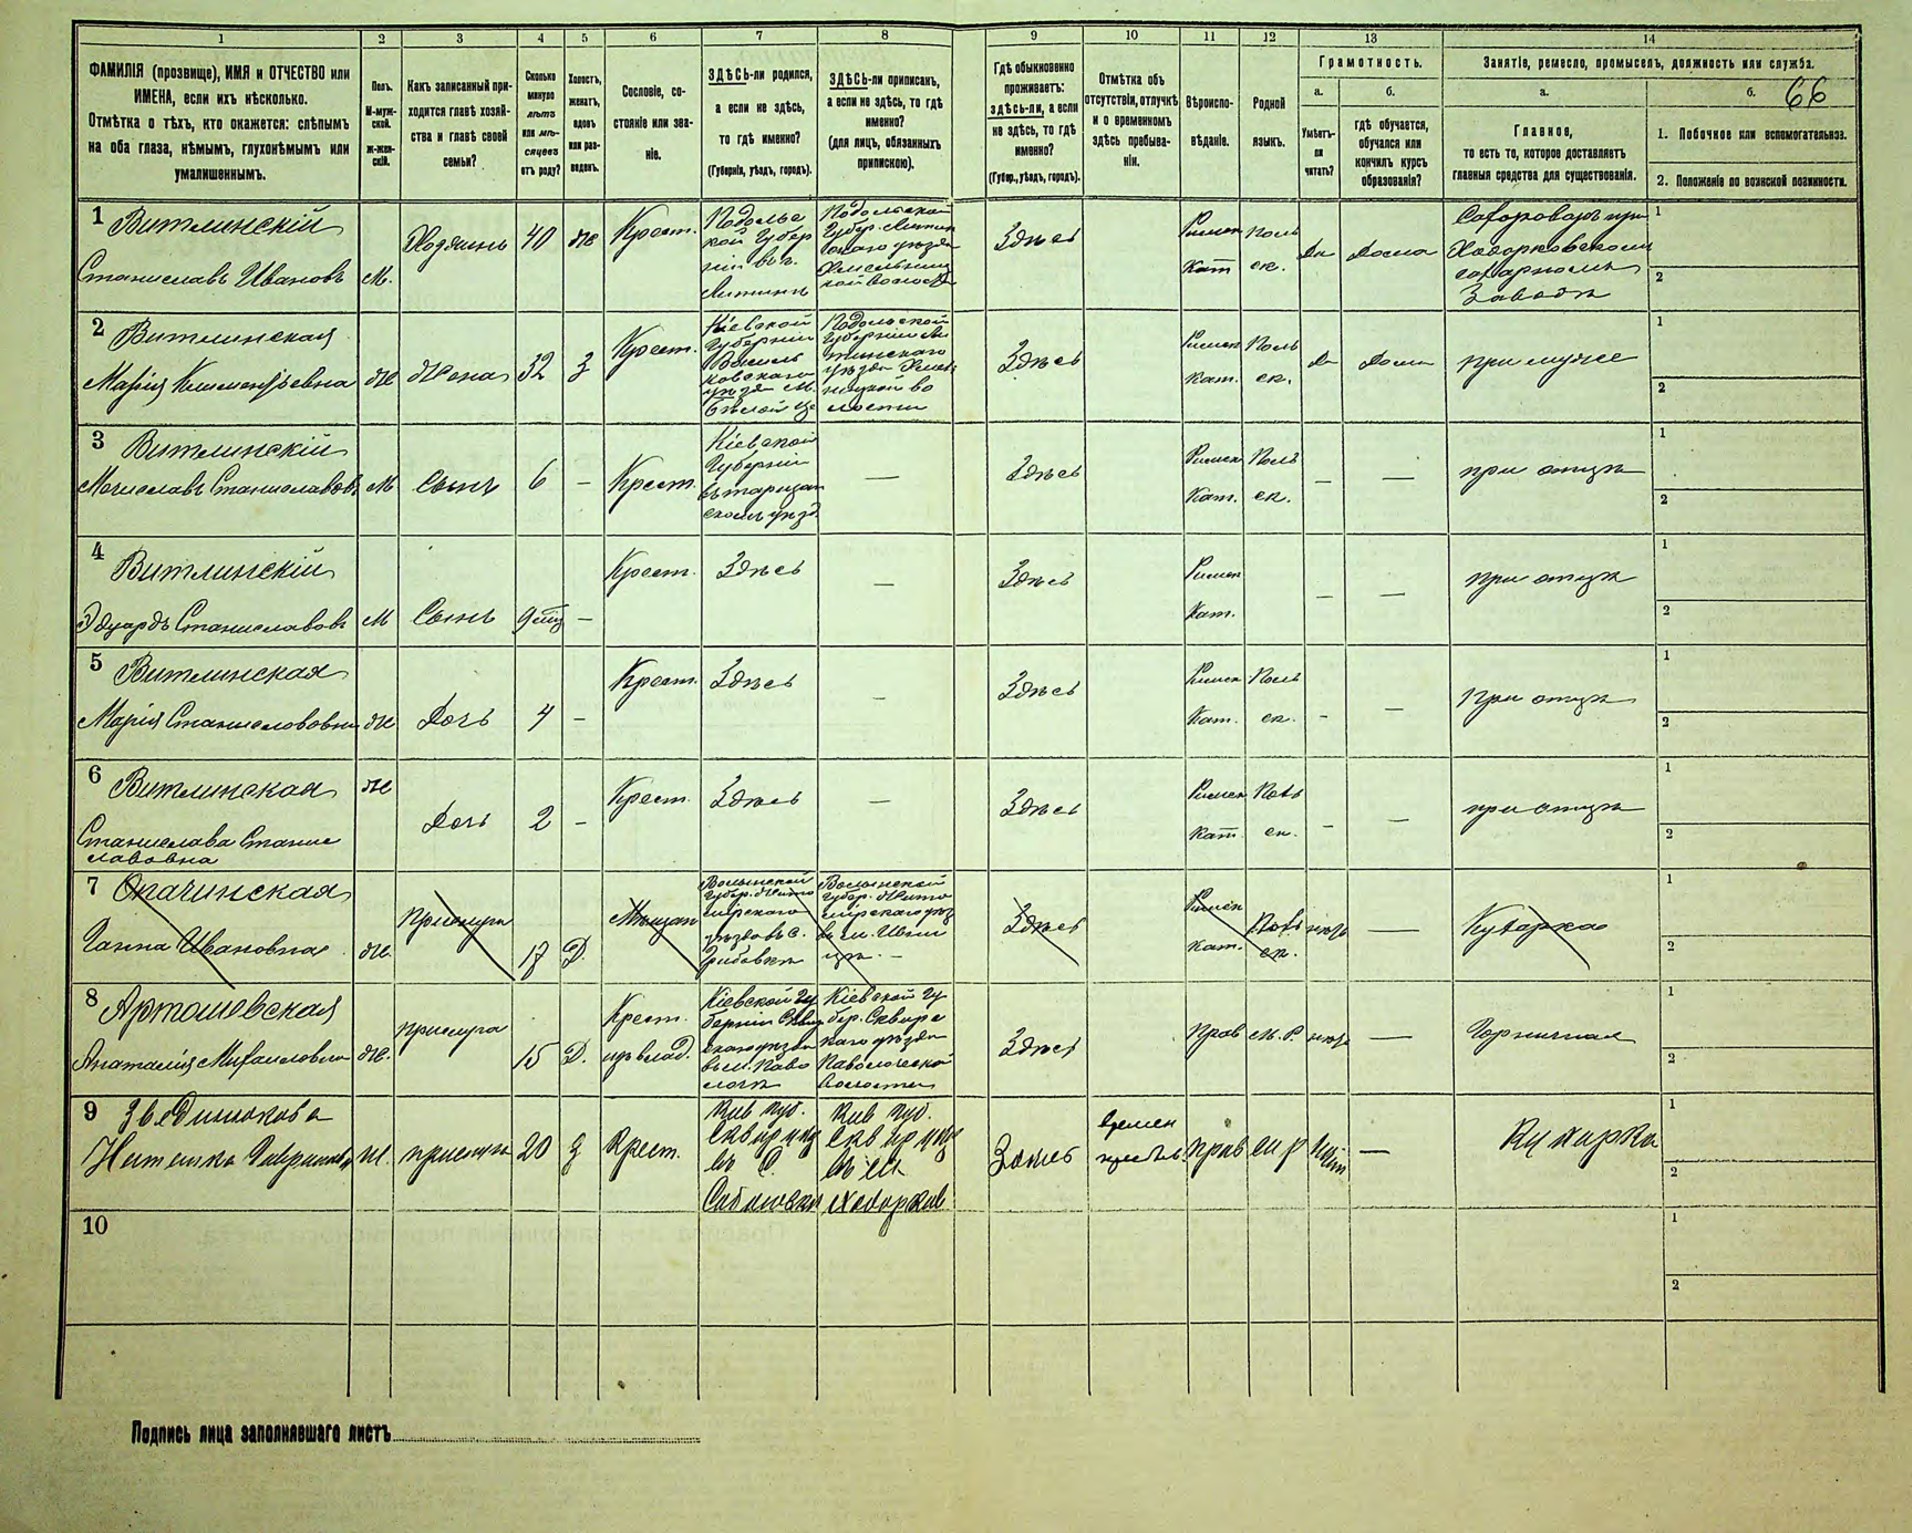 1
2
3
4
5
6
7
8
9
10
11
12
13
14
ФАМИЛІЯ (прозвище), ИМЯ и ОТЧЕСТВО или
ИМЕНА, если ихъ нѣсколько.
Отмѣтка о тѣхъ, кто окажется: слѣпымъ
на оба глаза, нѣмымъ, глухонѣмымъ или
умалишеннымъ.
Полъ.
М-муж-
ской.
Ж-жен-
скій.
Какъ записанный при-
ходится главѣ хозяй-
ства и главѣ своей
семьи?
Сколько
минуло
лѣтъ
или мѣ-
сяцевъ
отъ роду?
Холостъ,
женатъ,
вдовъ
или раз-
веденъ.
Сословіе, со-
стояніе или зва-
ніе.
ЗДѢСЬ-ли родился,
а если не здѣсь,
то гдѣ именно?
(Губернія, уѣздъ, городъ).
ЗДѢСЬ-ли приписанъ,
а если не здѣсь, то гдѣ
именно?
(для лицъ, обязанныхъ
припискою).
Гдѣ обыкновенно
проживаетъ:
здѣсь-ли, а если
не здѣсь, то гдѣ
именно?
(Губер., уѣздъ, городъ).
Отмѣтка объ
отсутствіи, отлучкѣ
и о временномъ
здѣсь пребыва-
ніи.
Вѣроиспо-
вѣданіе.
Родной
языкъ.
Грамотность.
а.
Умѣетъ-
ли
читать?
б.
гдѣ обучается,
обучался или
кончилъ курсъ
образованія?
Занятіе, ремесло, промыселъ, должность или служба.
а.
Главное,
то есть то, которое доставляетъ
главныя средства для существованія.
б.
66
1. Побочное или вспомогательное.
2. Положеніе по воинской повинности.
1 Витлинскій
Станиславъ Ивановъ
М.
Хозяинъ
40
Же
Крест.
Подольс
кой Губер
ніи въ г.
Литинѣ
Подольской
Губер. Литин
скаго уѣзда
Хмельниц
кой волости
Здѣсь
Римск
Кат
Поль
ск.
Да
Дома
Сахароваръ при
Ходорковскомъ
сахарномъ
Заводѣ
1
2
2 Витлинская
Марія Климентьевна
Же
Жена
32
З
Крест.
Кіевской
Губерніи
Василь
ковскаго
уѣзда М.
Бѣлой Це
Подольской
Губерніи Ли
тинскаго
уѣзда Хмель
ницкой во
лости
Здѣсь
Римск
Кат.
Поль
ск.
Да
Дома
при мужѣ
1
2
3 Витлинскій
Мечиславъ Станиславовъ
М
Сынъ
6
–
Крест.
Кіевской
Губерніи
въ таращан
скомъ уѣзд.
—
Здѣсь
Римск
Кат.
Поль
ск.
–
—
при отцѣ
1
2
4 Витлинскій
Эдуардъ Станиславовъ
М
Сынъ
9 мѣс
–
Крест.
Здѣсь
—
Здѣсь
Римск
Кат.
–
—
при отцѣ
1
2
5 Витлинская
Марія Станиславовна
Же
Дочь
4
–
Крест.
Здѣсь
–
Здѣсь
Римск
Кат.
Поль
ск.
-
—
При отцѣ
1
2
6 Витлинская
Станислава Станис
лавовна
Же
Дочь
2
–
Крест.
Здѣсь
—
Здѣсь
Римск
Кат.
Поль
ск.
–
—
при отцѣ
1
2
7 Опачинская
Ганна Ивановна
Же.
Прислуга
17
Д.
Мѣщан
Волынской
Губер. Жито
мірскаго
уѣзда въ с.
Грибовкѣ
Волынской
Губер. Жито
мірскаго уѣз
въ м. Ивни
цѣ. –
Здѣсь
Римск
кат.
Поль
ск.
—
Кухарка
1
2
8 Артошевская
Анаталія Михаиловна
Же.
прислуга
15
Д.
Крест.
изъ влад.
Кіевской Гу
берніи Сквир
скаго уѣзда
въ м. Паво
лочѣ
Кіевской Гу
бер. Сквирс
каго уѣзда
Паволочской
Волости
Здѣсь
Прав
М. Р.
—
Горничная
1
2
9
Ж.
прислуга
20
З
Крест.
Кив Губ.
Сквир уѣз
въ С.
Кив Губ.
Сквир уѣз
въ м.
Ходорков
Здѣсь
Времен
Прав
М Р
—
Кухарка
1
2
10
1
2
Подпись лица заполнявшаго листъ